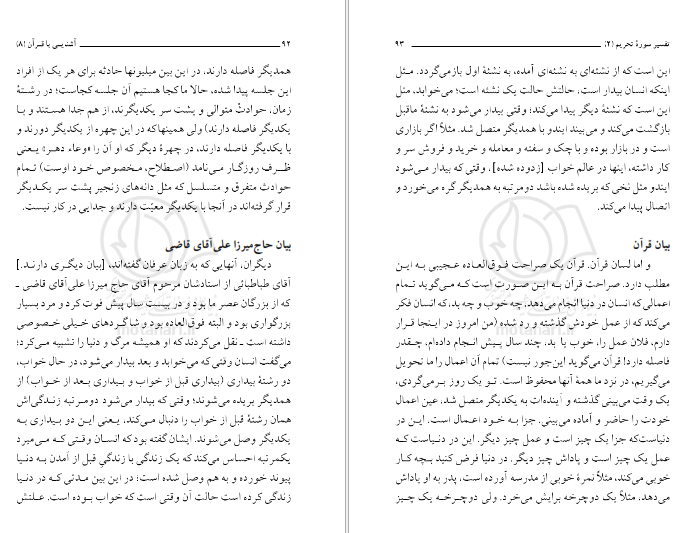 ۹۲ آشنایی با قرآن (۸)
همدیگر فاصله دارند، در این بین میلیونها حادثه برای هر یک از افراد
این جلسه پیدا شده، حالا ما کجا هستیم آن جلسه کجاست؛ در رشتهٔ
زمان، حوادثْ متوالی و پشت سر یکدیگرند، از هم جدا هستند و با
یکدیگر فاصله دارند) ولی همینهاکه در این چهره از یکدیگر دورند و
با یکدیگر فاصله دارند، در چهرهٔ دیگر که او آن را «وعاء دهر» یعنی
ظرف روزگار می‌نامد (اصطلاح، مخصوص خود اوست) تمام
حوادث متفرق و متسلسل که مثل دانه‌های زنجیر پشت سر یکدیگر
قرار گرفته‌اند در آنجا با یکدیگر معیّت دارند و جدایی در کار نیست.
بیان حاج میرزا علی‌آقای قاضی
دیگران، آنهایی که به زبان عرفان گفته‌اند، [بیان دیگری دارند.]
آقای طباطبائی از استادشان مرحوم آقای حاج میرزا علی‌آقای قاضی ـ
که از بزرگان عصر ما بود و در بیست سال پیش فوت کرد و مرد بسیار
بزرگواری بود و البته فوق‌العاده بود و شاگردهای خیلی خصوصی
داشته است ـ نقل می‌کردند که او همیشه مرگ و دنیا را تشبیه می‌کرد؛
می‌گفت انسان وقتی که می‌خوابد و بعد بیدار می‌شود، در حال خواب،
دو رشتهٔ بیداری (بیداری قبل از خواب و بیداری بعد از خواب) از
همدیگر بریده می‌شوند؛ وقتی که بیدار می‌شود دومرتبه زندگی‌اش
همان رشتهٔ قبل از خواب را دنبال می‌کند، یعنی این دو بیداری به
یکدیگر وصل می‌شوند. ایشان گفته بود که انسان وقتی که می‌میرد
یکمرتبه احساس می‌کند که یک زندگی با زندگیِ قبل از آمدن به دنیا
پیوند خورده و به هم وصل شده است؛ در این بین مدتی که در دنیا
زندگی کرده است حالت آن وقتی است که خواب بوده است. علتش
تفسیر سورهٔ تحریم (۲) ۹۳
این است که از نشئه‌ای به نشئه‌ای آمده، به نشئهٔ اول بازمی‌گردد. مثل
اینکه انسان بیدار است، حالتش حالت یک نشئه است؛ می‌خوابد، مثل
این است که نشئهٔ دیگر پیدا می‌کند؛ وقتی بیدار می‌شود به نشئهٔ ماقبل
بازگشت می‌کند و می‌بیند ایندو با همدیگر متصل شد. مثلاً اگر بازاری
است و در بازار بوده و با چک و سفته و معامله و خرید و فروش سر و
کار داشته، اینها در عالم خواب [زدوده شده]. وقتی که بیدار می‌شود
ایندو مثل نخی که بریده شده باشد دومرتبه به همدیگر گره می‌خورد و
اتصال پیدا می‌کند.
بیان قرآن
و اما لسان قرآن. قرآن یک صراحت فوق‌العاده عجیبی به این
مطلب دارد. صراحت قرآن به این صورت است که می‌گوید تمام
اعمالی که انسان در دنیا انجام می‌دهد، چه خوب و چه بد، که انسان فکر
می‌کند که از عمل خودش گذشته و رد شده (من امروز در اینجا قرار
دارم، فلان عمل را، خوب یا بد، چند سال پیش انجام داده‌ام، چقدر
فاصله دارد! قرآن می‌گوید این‌جور نیست) تمام آن اعمال را ما تحویل
می‌گیریم، در نزد ما همهٔ آنها محفوظ است. تو یک روز برمی‌گردی،
یک وقت می‌بینی گذشته و آینده‌ات به یکدیگر متصل شد، عین اعمال
خودت را حاضر و آماده می‌بینی. جزا به خود اعمال است. این در
دنیاست‌که جزا یک چیز است و عمل چیز دیگر. این در دنیاست که
عمل یک چیز است و پاداش چیز دیگر. در دنیا فرض کنید بچه کار
خوبی می‌کند، مثلاً نمرهٔ خوبی از مدرسه آورده است، پدر به او پاداش
می‌دهد، مثلاً یک دوچرخه برایش می‌خرد. ولی دوچرخه یک چیز
motahari.ir
motahari.ir